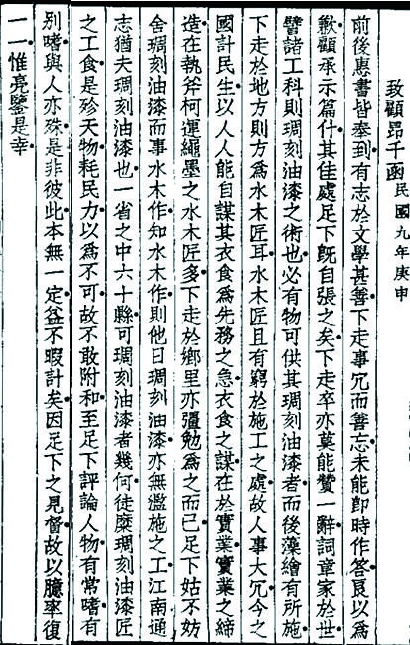 致顧昂千函民國九年庚申
前後惠書皆奉到有志於文學甚善下走事冗而善忘未能卽時作答良以爲
歉顧承示篇什其佳處足下旣自張之矣下走卒亦莫能贊一辭詞章家於世
譬諸工科則琱刻油漆之術也必有物可供其琱刻油漆者而後藻繪有所施
下走於地方則方爲水木匠耳水木匠且有窮於施工之處故人事大冗今之
國計民生以人人能自謀其衣食爲先務之急衣食之謀在於實業實業之締
造在執斧柯運繩墨之水木匠多下走於鄉里亦彊勉爲之而已足下姑不妨
舍琱刻油漆而事水木作知水木作則他日琱刻油漆亦無濫施之工江南通
志猶夫琱刻油漆也一省之中六十縣可琱刻油漆者幾何徒糜琱刻油漆匠
之工食是殄天物耗民力以爲不可故不敢附和至足下評論人物有常嗜有
別嗜與人亦殊是非彼此本無一定益不暇計矣因足下之見督故以臆率復
一一惟亮鑒是幸